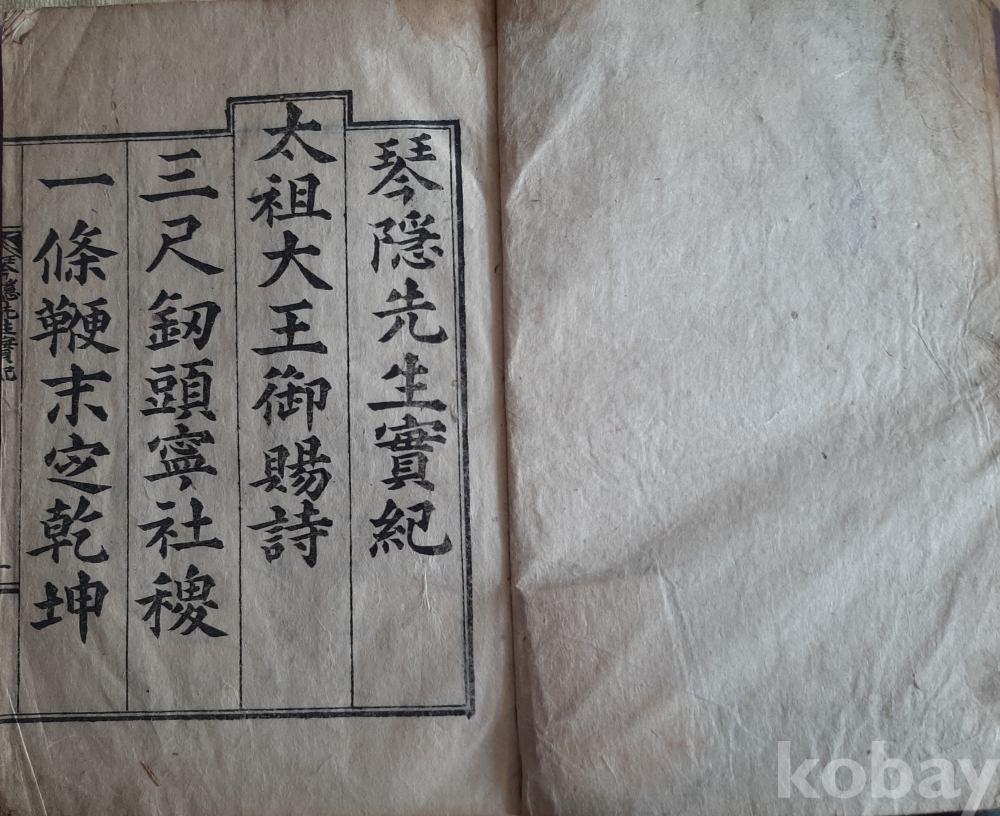 琴隠先生實紀
太祖大王御賜詩
三尺釼頭寧社稷
一條鞭末定乾坤
琴隠先生實紀
一
kobay